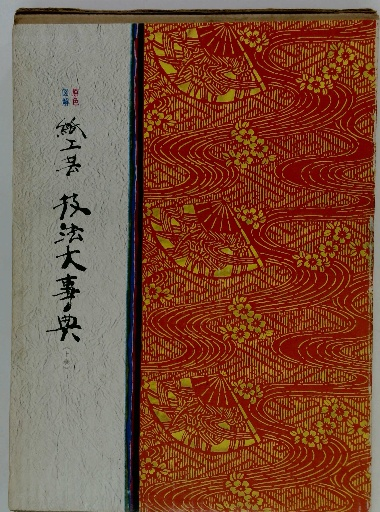 原色
図解
紙工芸
技法大事典